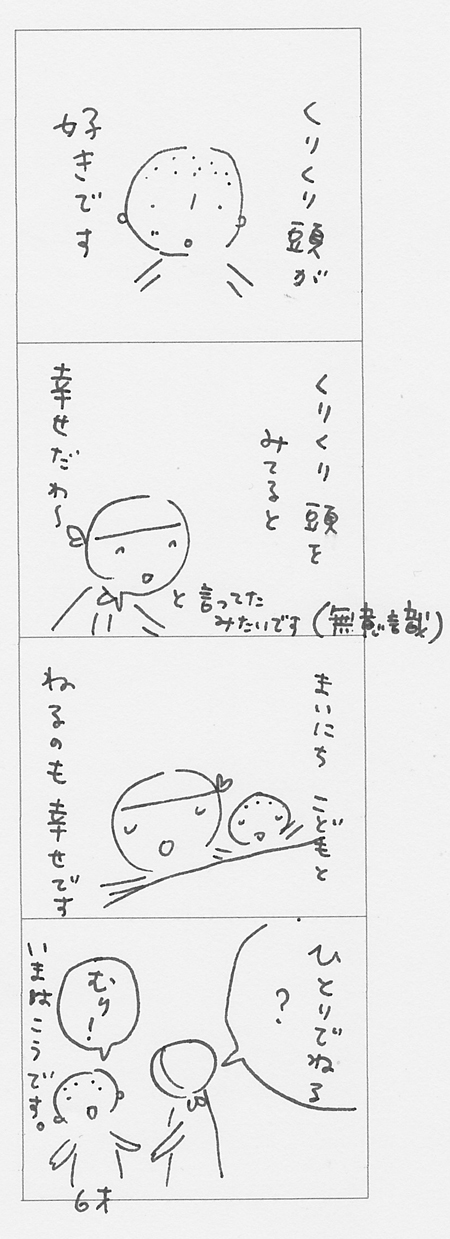 くりくり頭が
好きです
くりくり頭を
みてると
幸せだわ〜
と言ってた
みたいです(無意識)
まいにちこどもと
ねるのも幸せです
ひとりでねる
?
むり!
いまはこうです。
6才